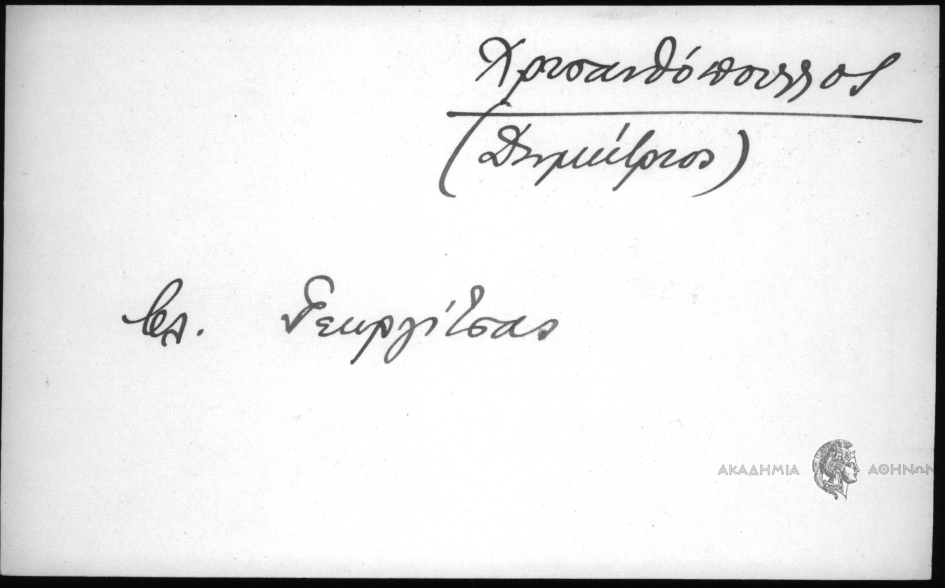 Χρυσανθόπουλλος
(Δημήτριος)
βλ. Γεωργίτσας
ΑΚΑΔΗΜΙΑ ΑΘΗΝΩΝ